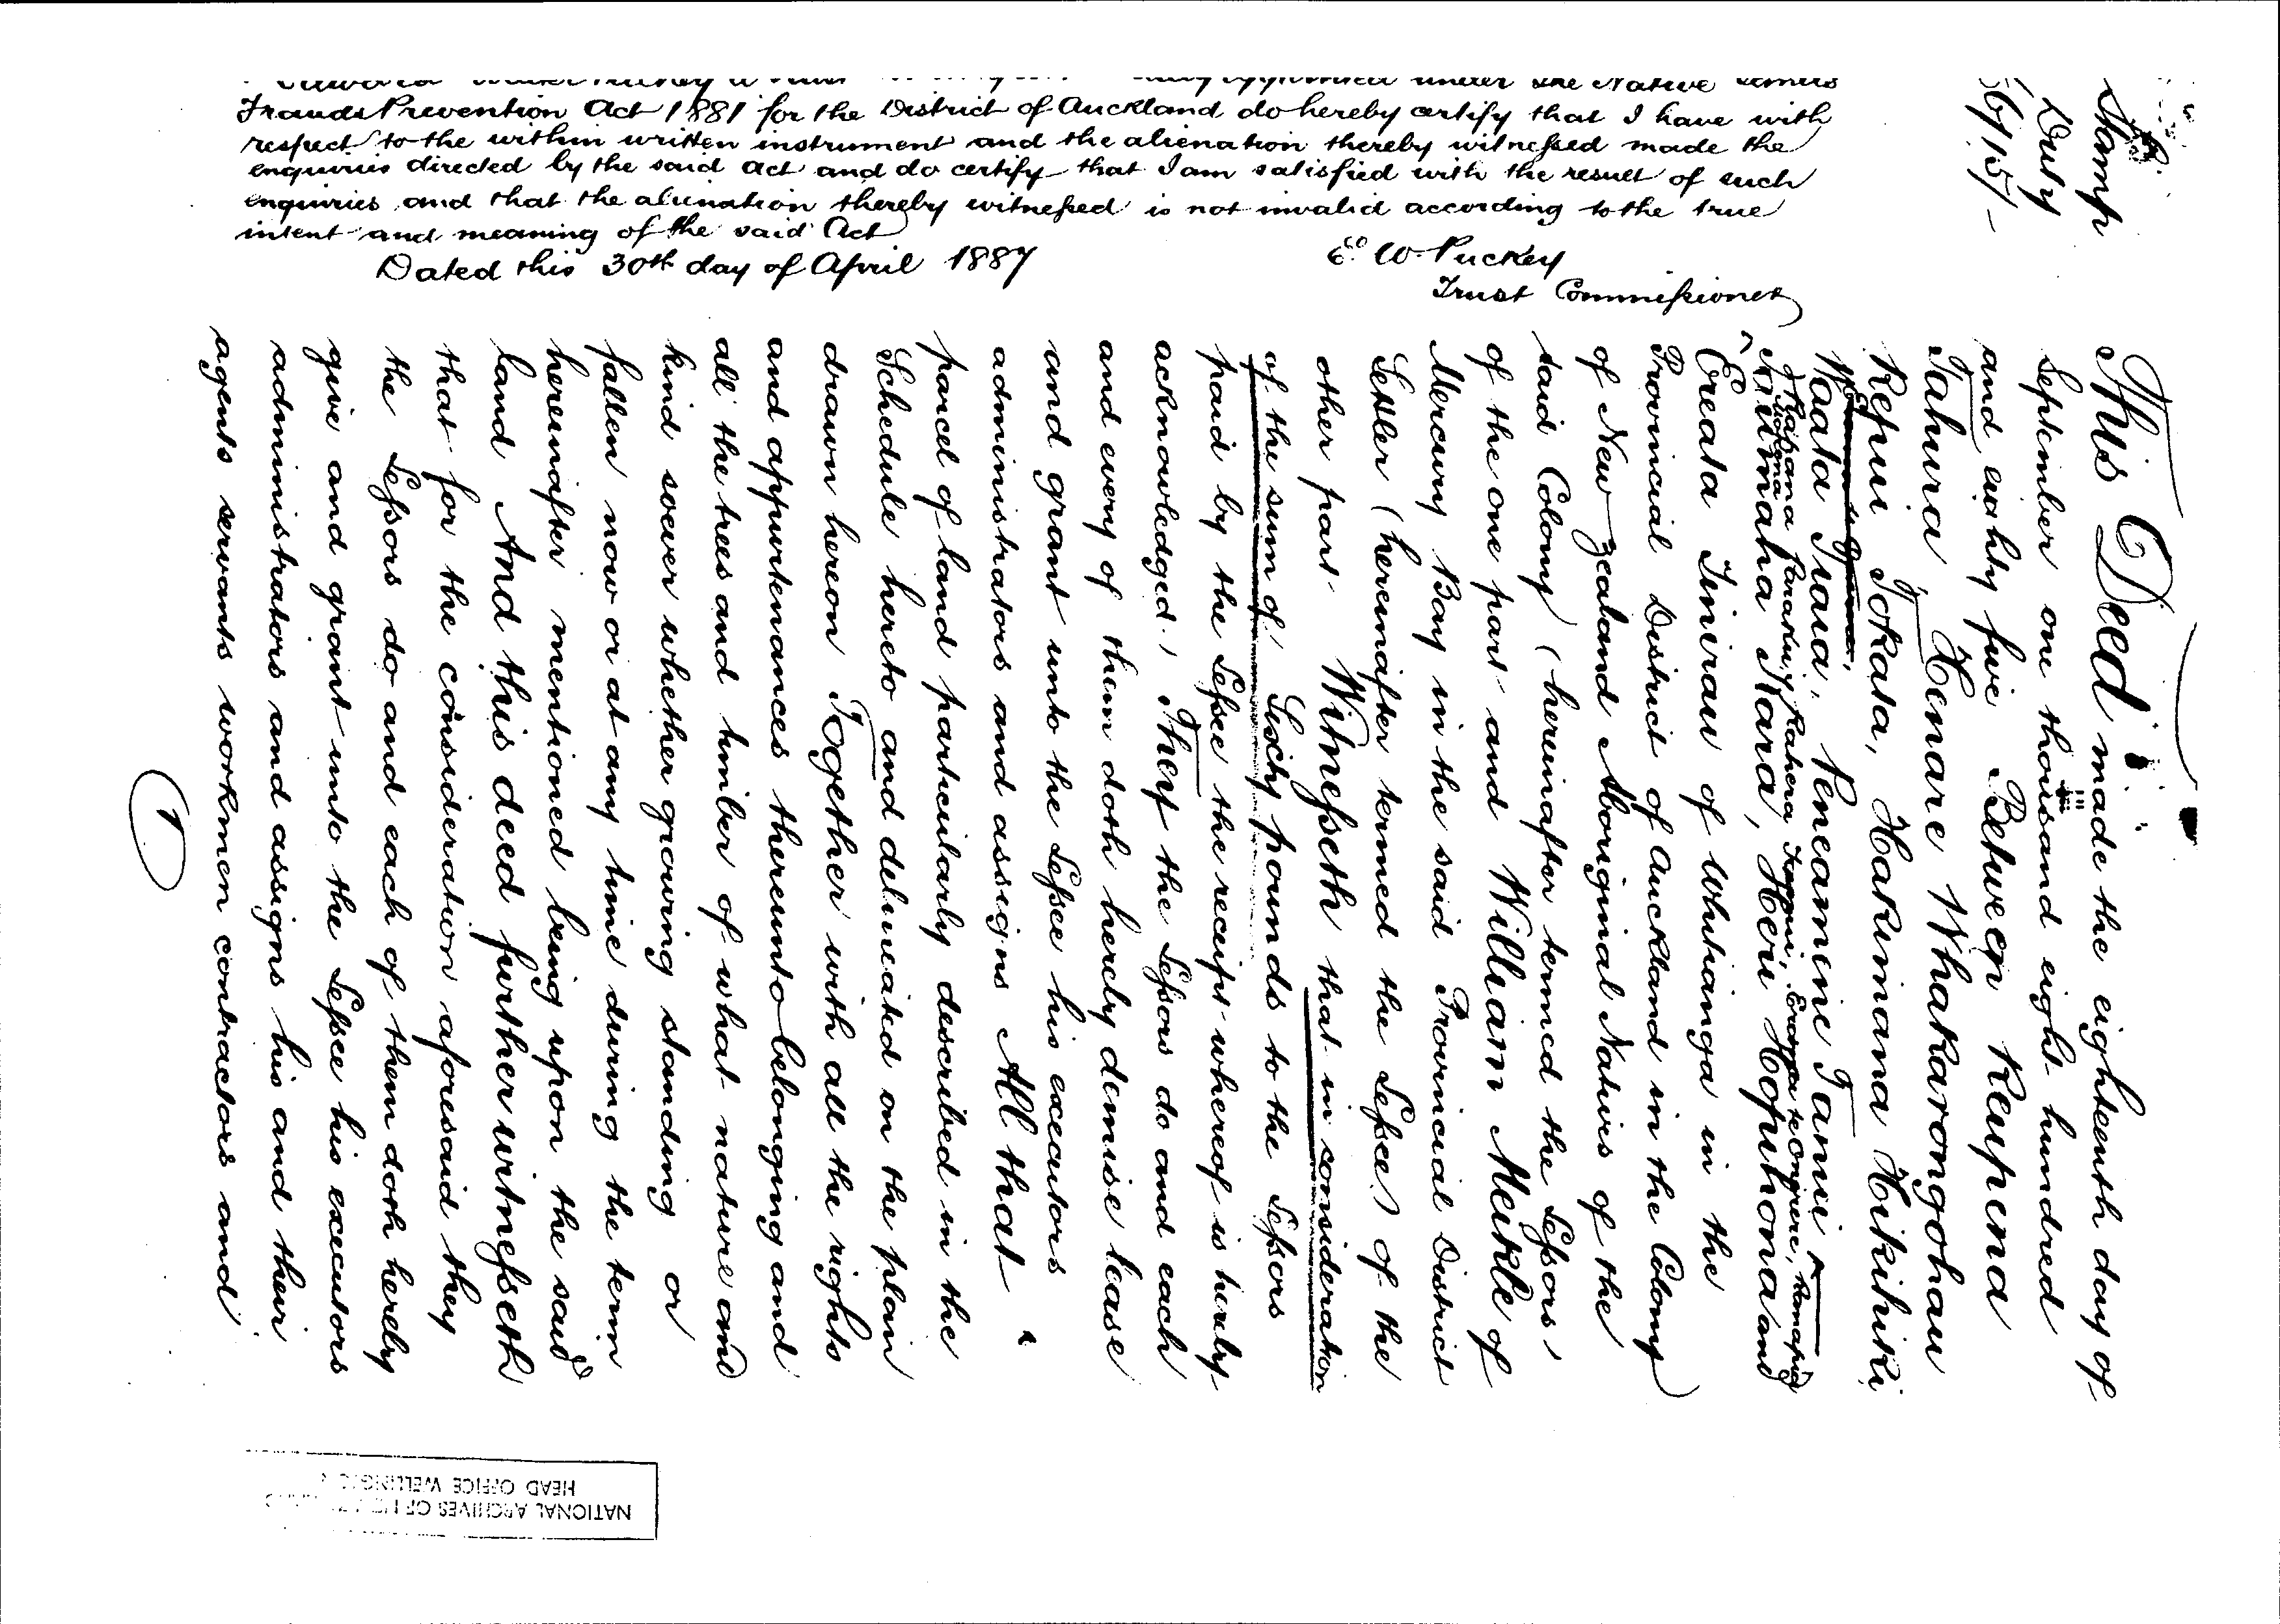 Edward Walter Puckey a Trust duly appointed under the Native Lands
Frauds Prevention Act 1881 for the District of Auckland do hereby certify that I have with
respect to the within written instrument and the alienation thereby witnessed made the
enquiries directed by the said Act and do certify that I am satisfied with the result of such
enquiries and that the alienation thereby witnessed is not invalid according to the true
intent and meaning of the said Act
Dated this 30th day of April 1887
E. W. Puckey
Trust Commissioner
Stamp
Duty
This Deed made the eighteenth day of
September one thousand eight hundred
and eighty five Between Reupena
Tahura, Henare Whakarongohau
Repui Tokata, Hakiriana Hikihiki
Waata Traia, Peneamine Tanui
Maraea Parakuy Rahera Tanui, Erana te Ongiere, Remapia
Mara, Heri Haputiona and
Ereata Tinirau of Whitianga in the
Provincial District of Auckland in the Colony
of New Zealand Aboriginal Natives of the
said Colony (hereinafter termed the Lessors,
of the one part and William Meikle of
Mercury Bay in the said Provincial District
Settler (hereinafter termed the Lessee) of the
other part Witnesseth that in consideration
of the sum of Sixty pounds to the Lessors
paid by the Lessee the receipt whereof is hereby
acknowledged, They the Lessors do and each
and every of them doth hereby demise lease
and grant unto the Lessee his executors
administrators and assigns All that
parcel of land particularly described in the
Schedule hereto and delineated on the plan
drawn hereon Together with all the rights
and appurtenances thereunto belonging and
all the trees and timber of what nature and
kind soever whether growing standing or
fallen now or at any time during the term
hereinafter mentioned being upon the said
land And this deed further witnesseth
that for the consideration aforesaid they
the Lessors do and each of them doth hereby
give and grant unto the Lessee his executors
administrators and assigns his and their
agents servants workmen contractors and
1
NATIONAL ARCHIVES OF
HEAD OFFICE WELLINGTON